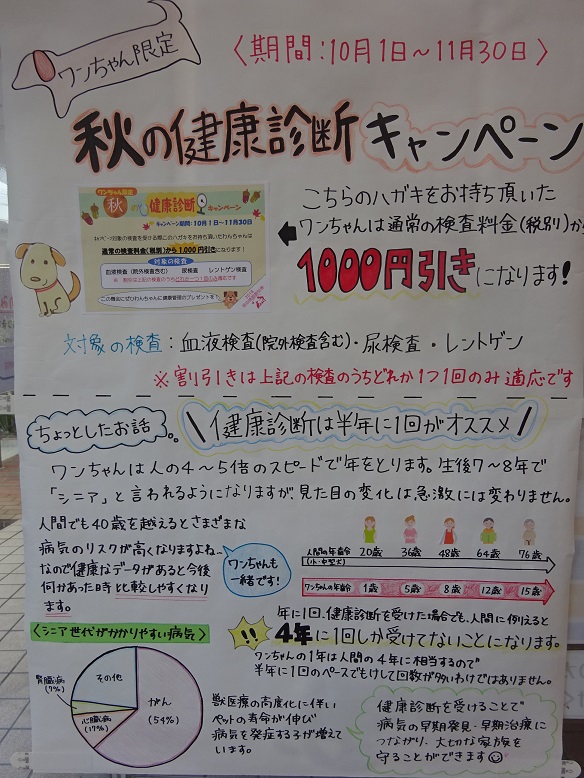 ワンちゃん限定
〈期間:10月1日～11月30日〉
秋の健康診断キャンペーン
ワンちゃん限定
秋の健康診断キャンペーン
キャンペーン期間:10月1日～11月30日
通常の検査料金(税別)から1,000円引きになります!
対象の検査
血液検査(院外検査含む) 尿検査 レントゲン検査
こちらのハガキをお持ち頂いた
ワンちゃんは通常の検査料金(税別)か
1000円引きになります!
対象の検査:血液検査(院外検査含む)・尿検査・レントゲン
※割り引きは上記の検査のうちどれか1つ1回のみ適応です
ちょっとしたお話。
\健康診断は半年に1回がオススメ/
ワンちゃんは人の4～5倍のスピードで年をとります。生後7～8年で
「シニア」と言われるようになりますが、見た目の変化は急激には変わりません。
人間でも40歳を越えるとさまざまな
病気のリスクが高くなりますよね…
なので健康なデータがあると今後
何かあった時比較しやすくなり
ます。
ワンちゃんも
一緒です!
人間の年齢 20歳 36歳 48歳 64歳 76歳
(小・中型犬)
ワンちゃんの年齢 1歳 5歳 8歳 12歳 15歳
年に1回、健康診断を受けた場合でも、人間に例えると
!! 4年に1回しか受けてないことになります。
ワンちゃんの1年は人間の4年に相当するので
半年に1回のペースでもけして回数が多いわけではありません。
〈シニア世代がかかりやすい病気〉
その他
腎臓病
(7%)
心臓病
(17%)
がん
(54%)
獣医療の高度化に伴い
ペットの寿命が伸び
病気を発症するが増えて
います。
健康診断を受けることで
病気の早期発見・早期治療に
つながり、大切な家族を
守ることができます